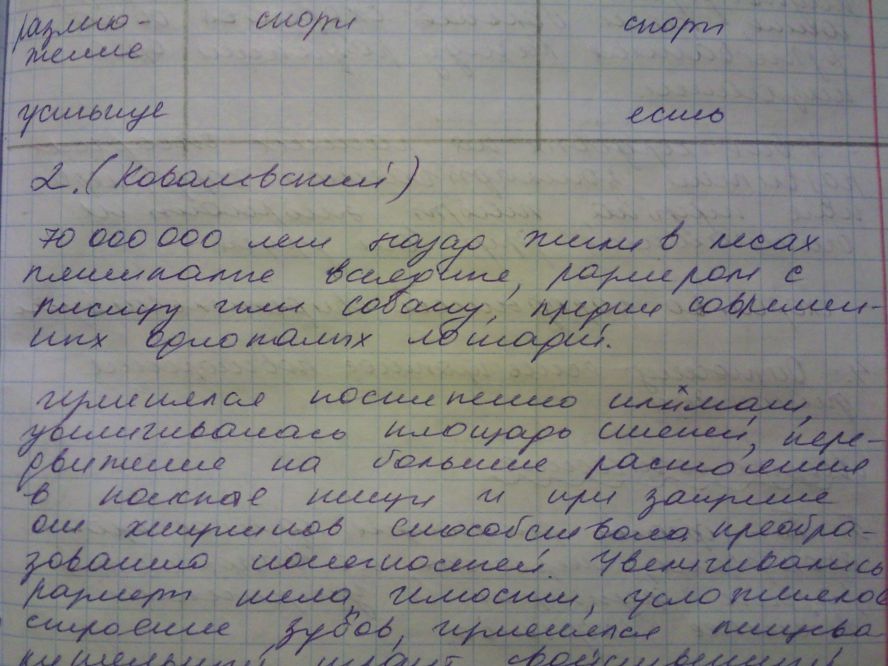 размно- споры споры
жение
устьице есть
2. (Ковалевский)
70 000 000 лет назад жили в лесах
пятипалые всеядные, размером с
лисицу или собаку, предки современ-
ных однопалых лошадей.
изменялся постепенно климат,
увеличивалась площадь степей, пере-
движение на большие расстояния
в поисках пищи и при защите
от хищников способствовала преобра-
зованию конечностей. Увеличивались
размеры тела, челюсти, усложнялось
строение зубов, изменялся пищева-
рительный тракт